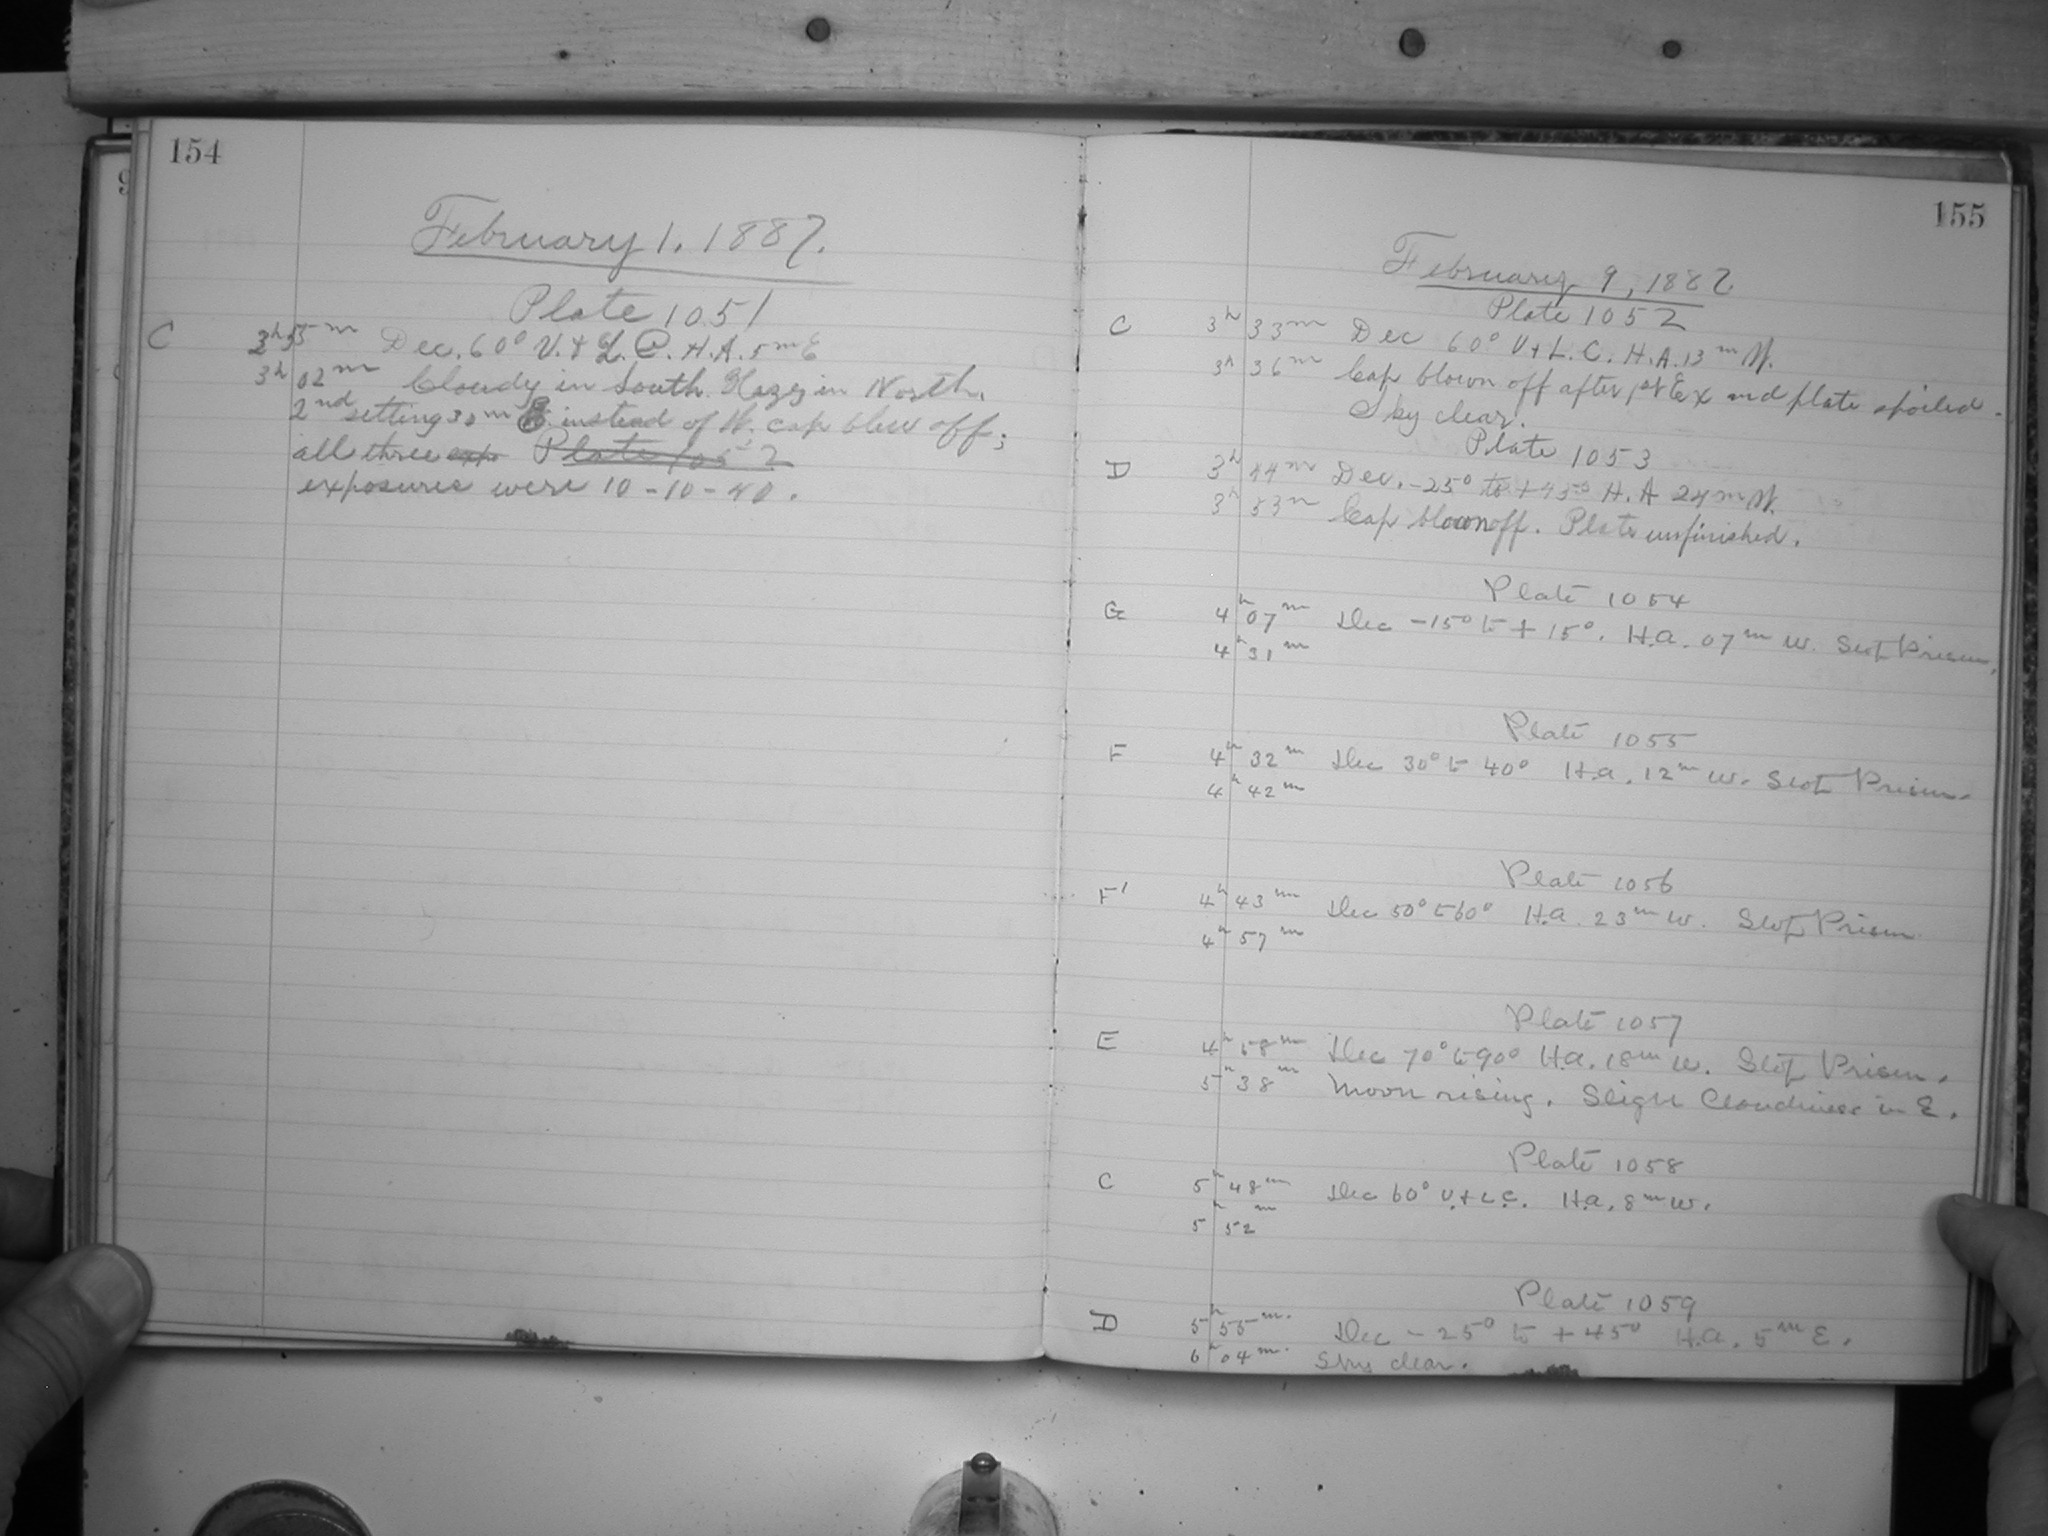 154
February 1. 1887.
Plate 1051
C 3h 55m Dec. 60° U. & L. C. H.A. 5m E
3h 02m Cloudy in South. Hazy in North.
2nd setting 30m E. instead of W. cap blew off;
all three expo Plate 1052
exposures were 10-10-40.
155
February 9, 1887
Plate 1052
C 3h 33m Dec 60° U & L. C. H.A. 13m W.
3h 36m Cap blown off after 1st Ex and plate spoiled.
Sky clear.
Plate 1053
D 3h 44m Dec. -25° to +45° H.A 24m W.
3h 53m Cap blown off. Plate unfinished.
Plate 1054
G 4h 07m Dec -15° to +15°. H.a. 07m W. Slot Prism.
4h 31m
Plate 1055
F 4h 32m Dec 30° to 40° H.a. 12m W. Slot Prism.
4h 42m
Plate 1056
F' 4h 43m Dec 50° to 60° H.a. 23m W. Slot Prism
4h 57m
Plate 1057
E 4h 58m Dec 70° to 90° H.a. 18m W. Slot Prism.
5h 38m Moon rising. Slight Cloudiness in E.
Plate 1058
C 5h 48m Dec 60° U. & L.C. H.a. 8m W.
5h 52m
Plate 1059
D 5h 55m. Dec -25° to +45° H.a. 5m E.
6h 04m. Sky clear.